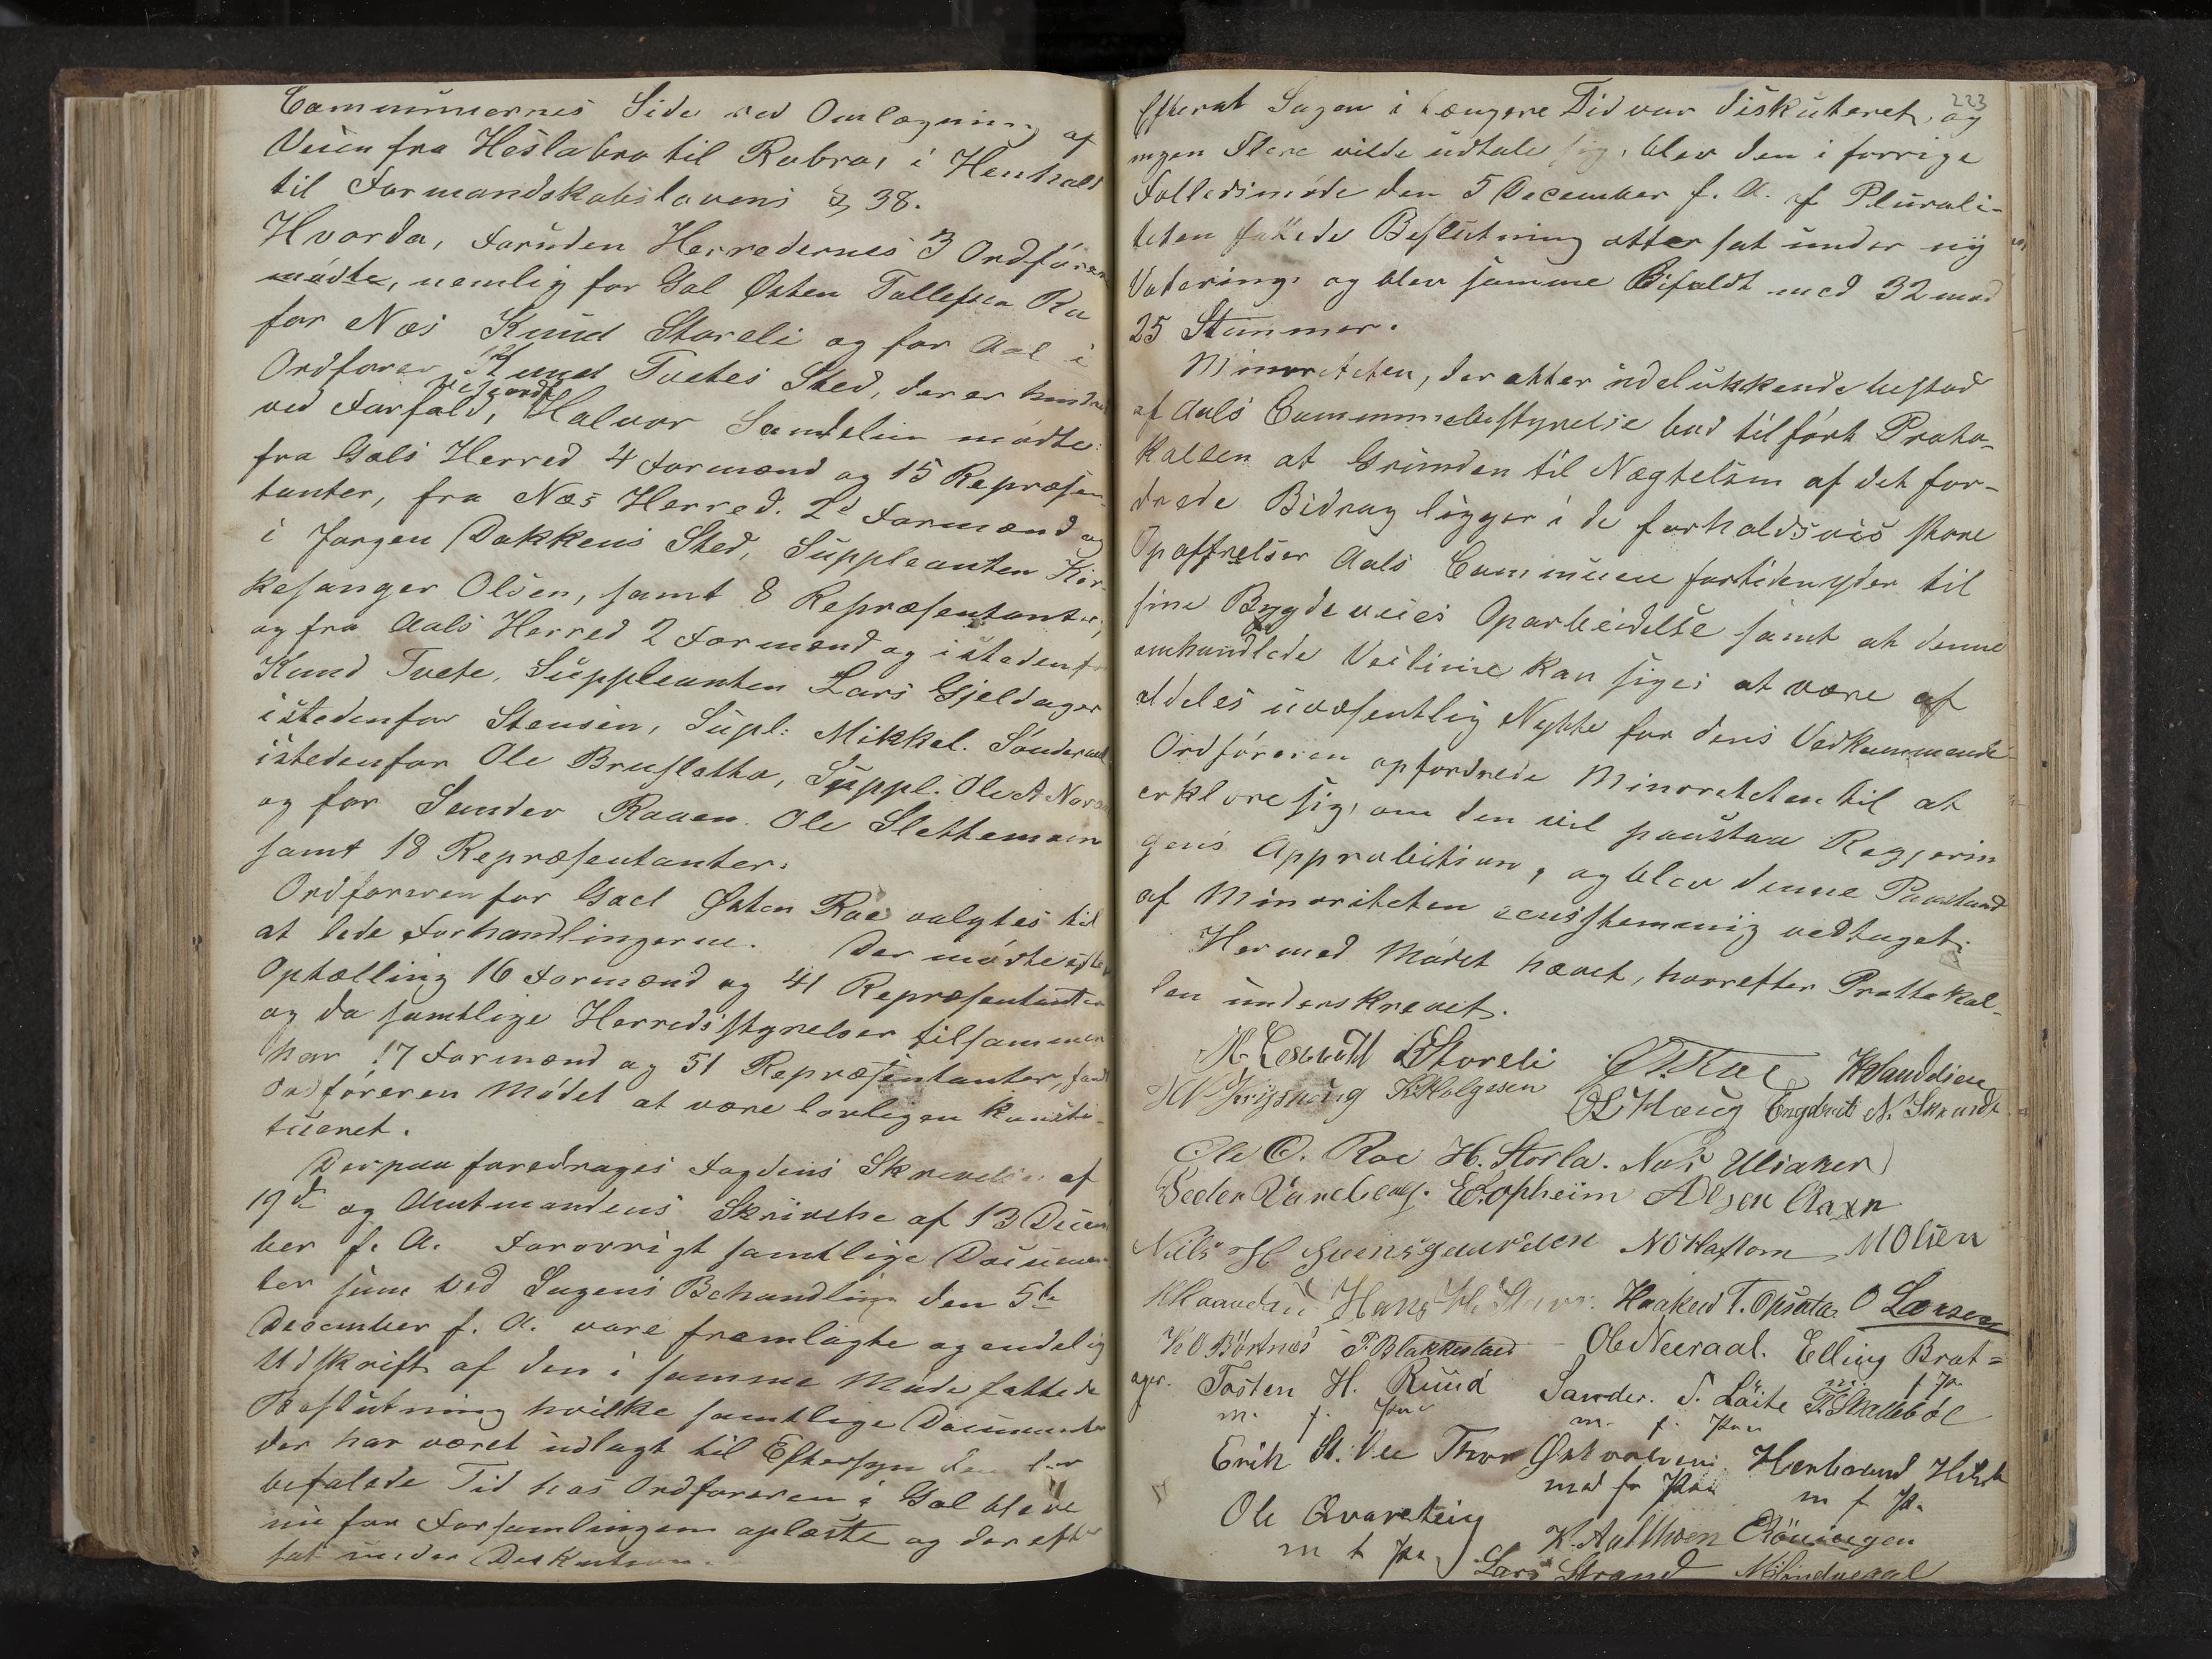 Communernes Side ved Omlægning af
Veien fra Heslabro til Robro, i Henhold
til Formandskabslovens § 38.
Hvorda, foruden Herredernes 3 Ordfører
mødte, nemlig for Gol Østen Tollefsen Ro
for Næs Knud Storeli og for Aal i
Ordfører Knud Tvetes Sted, der er hindret
ved Forfald, Viceordf Halvor Sundelien mødte:
fra Gols Herred 4 Formænd og 15 Repræsen-
tanter, fra Næs Herred. 2d Formænd og
i Jørgen Dokkens Sted, Suppleanten Kir-
kesanger Olsen, samt 8 Repræsentanter,
og fra Aals Herred 2 Formænd og istedenfor
Knud Tvete, Suppleanten Lars Gjeldager
istedenfor Stensen, Supl: Mikkel. Sønderaal
istedenfor Ole Bruslettho, Suppl. Ole A Noraal
og for Sander Raaen. Ole Slettemoen
samt 18 Repræsentanter.
Ordføreren for Goel Østen Roe valgtes til
at lede Forhandlingerne. Der mødte efter
Optælling 16 Formænd og 41 Repræsentanter
og da samtlige Herredsstyrelser tilsammen
har 17 Formænd og 51 Repræsentanter, fandt
Ordføreren Mødet at være lovligen konsti-
tueret.
Derpaa foredroges Fogdens Skrivelse af
19de og Amtmandens Skrivelse af 13 Decem
ber f. A. Forøvrigt samtlige Documen
ter som ved Sagens Behandling den 5te
December f. A. vare fremlagte og endelig
Udskrift af den i samme Møde fattede
Beslutning hvilke samtlige Documenter
der har været udlagt til Eftersyn den be
befalede Tid hos Ordføreren i Gol bleve
nu for Forsamlingen oplæste og derefter
sat under Diskution.
223
Efterat Sagen i længere Tid var diskuteret, og
ingen Flere vilde udtale sig, blev den i forrige
Fælledsmøde den 5 December f. A. af Plurali-
teten fattede Beslutning atter sat under ny
Votering, og blev samme Bifaldt med 32 mod
25 Stemmer.
Minoriteten, der atter udelukkende bestod
af Aals Communebestyrelse bad tilført Proto-
kollen at Grunden til Nægtelsen af det for-
drede Bidrag ligger i de forholdsvis store
Opoffrelser Aals Commune fortiden yder til
sine Bygdeveies Oparbeidelse samt at denne
omhandlede Veilinie kan siges at være af
aldeles uvæsentlig Nytte for dens Vedkommende
Ordføreren opfordrede Minoriteten til at
erklære sig, om den vil paastaa Regjerin
gens Approbation, og blev denne Paastand
af Minoriteten eensstemmig vedtaget.
Hermed Mødet hævet, hvorefter Protokol-
len underskrevet.
KStoreli Ø.T.Roe HSundelien
K.Helgesen OLHaug Engebret N. Skrindt
Ole O. Roe H. Storla. Nils Ulsaker
PederRaneberg. E.Lopheim AOlsen Aaen
Niels H Svensgaarden NOHaftorn MOlsen
Hans H. Haakon T. Opsata O Larsen
K O Børtnes P.Blakkestad Ole Neeraal. Elling Brat=
ager. Tosten H. Ruud Sander. S. Løite T.Skallebøl
m. f. Pen m. f. Pen m. f. Pn
Erik St. Vee Thor Herbrand
med f Pen m f P.
Ole Qvarsteig K. Aalthoen
m f Pen Lars Strand NSindreaal